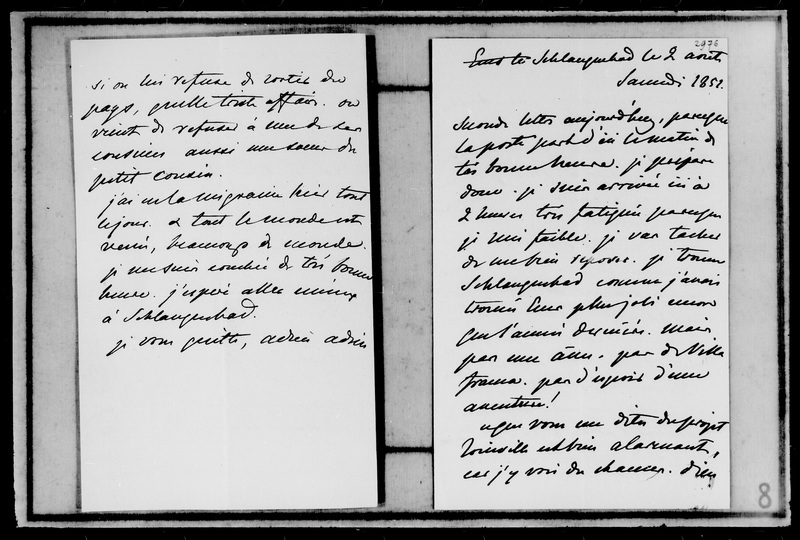 si on lui refuse de sortir du
pays, quelle triste affaire. on
vient de refuser à une de ses
cousines aussi une soeur du
petit cousin.
j'ai eu la migraine hier tout
le jour. & tout le monde est
venu, beaucoup de monde.
je me suis couchée de très bonne
heure. j'espère aller mieux
à Schlangenbad.
je vous quitte, adieu adieu
2976
Schlangenbad le 2 août
Samedi 1851.
aujourd'hui, parceque
la poste part d'ici le matin de
très bonne heure. je prépare
donc. je suis arrivée ici à
2 heures très fatiguée parceque
je suis faible. je vais tacher
de me bien reposer. je trouve
Schlangenbad comme j'avais
trouvé Ems plus joli encore
que l'année dernière. mais
pas une âme. pas de
pas d'espoir d'une
aventure!
ce que vous me dites du projet
Joinville est bien alarmant,
car j'y vois des chances. Dieu
8